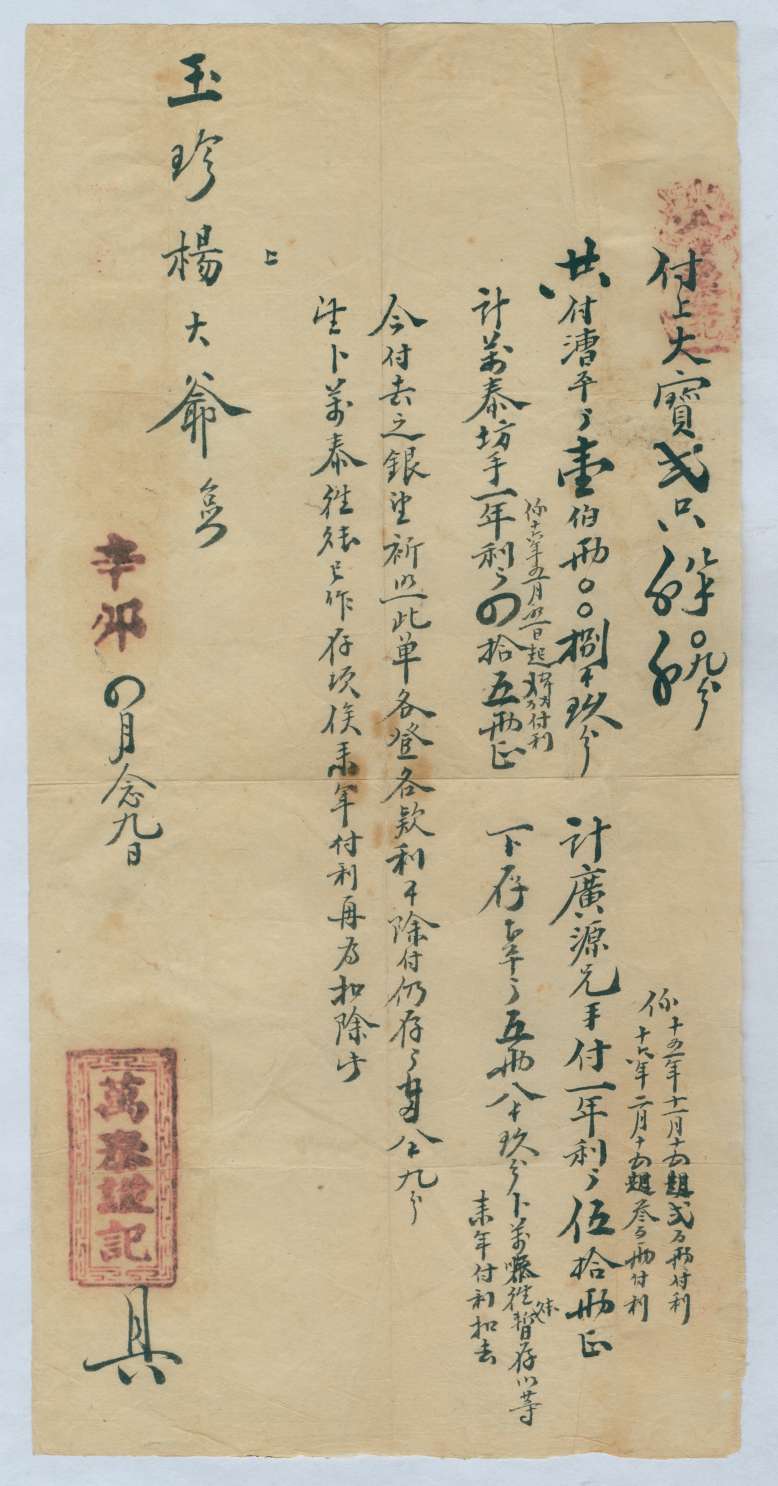 付上大寶弍只
共付漕平壹伯兩〇〇捌卜玖分
計萬泰坊手一年利四拾五兩正
係十六年五月日起付利
計廣源兄手付一年利伍拾兩正
係十五年十一月十五起弍百兩付利
十六年二月十五起叁百兩付利
下存五兩八卜玖分卜萬泰往暫存以等
來年付利扣去
今付去之銀望祈照此单各登各欵利下除付仍存九分
望卜萬泰往已作存項俟來年付利再為扣除步
上
玉珍楊大爺
辛卯四月念九日
萬泰坊記
具